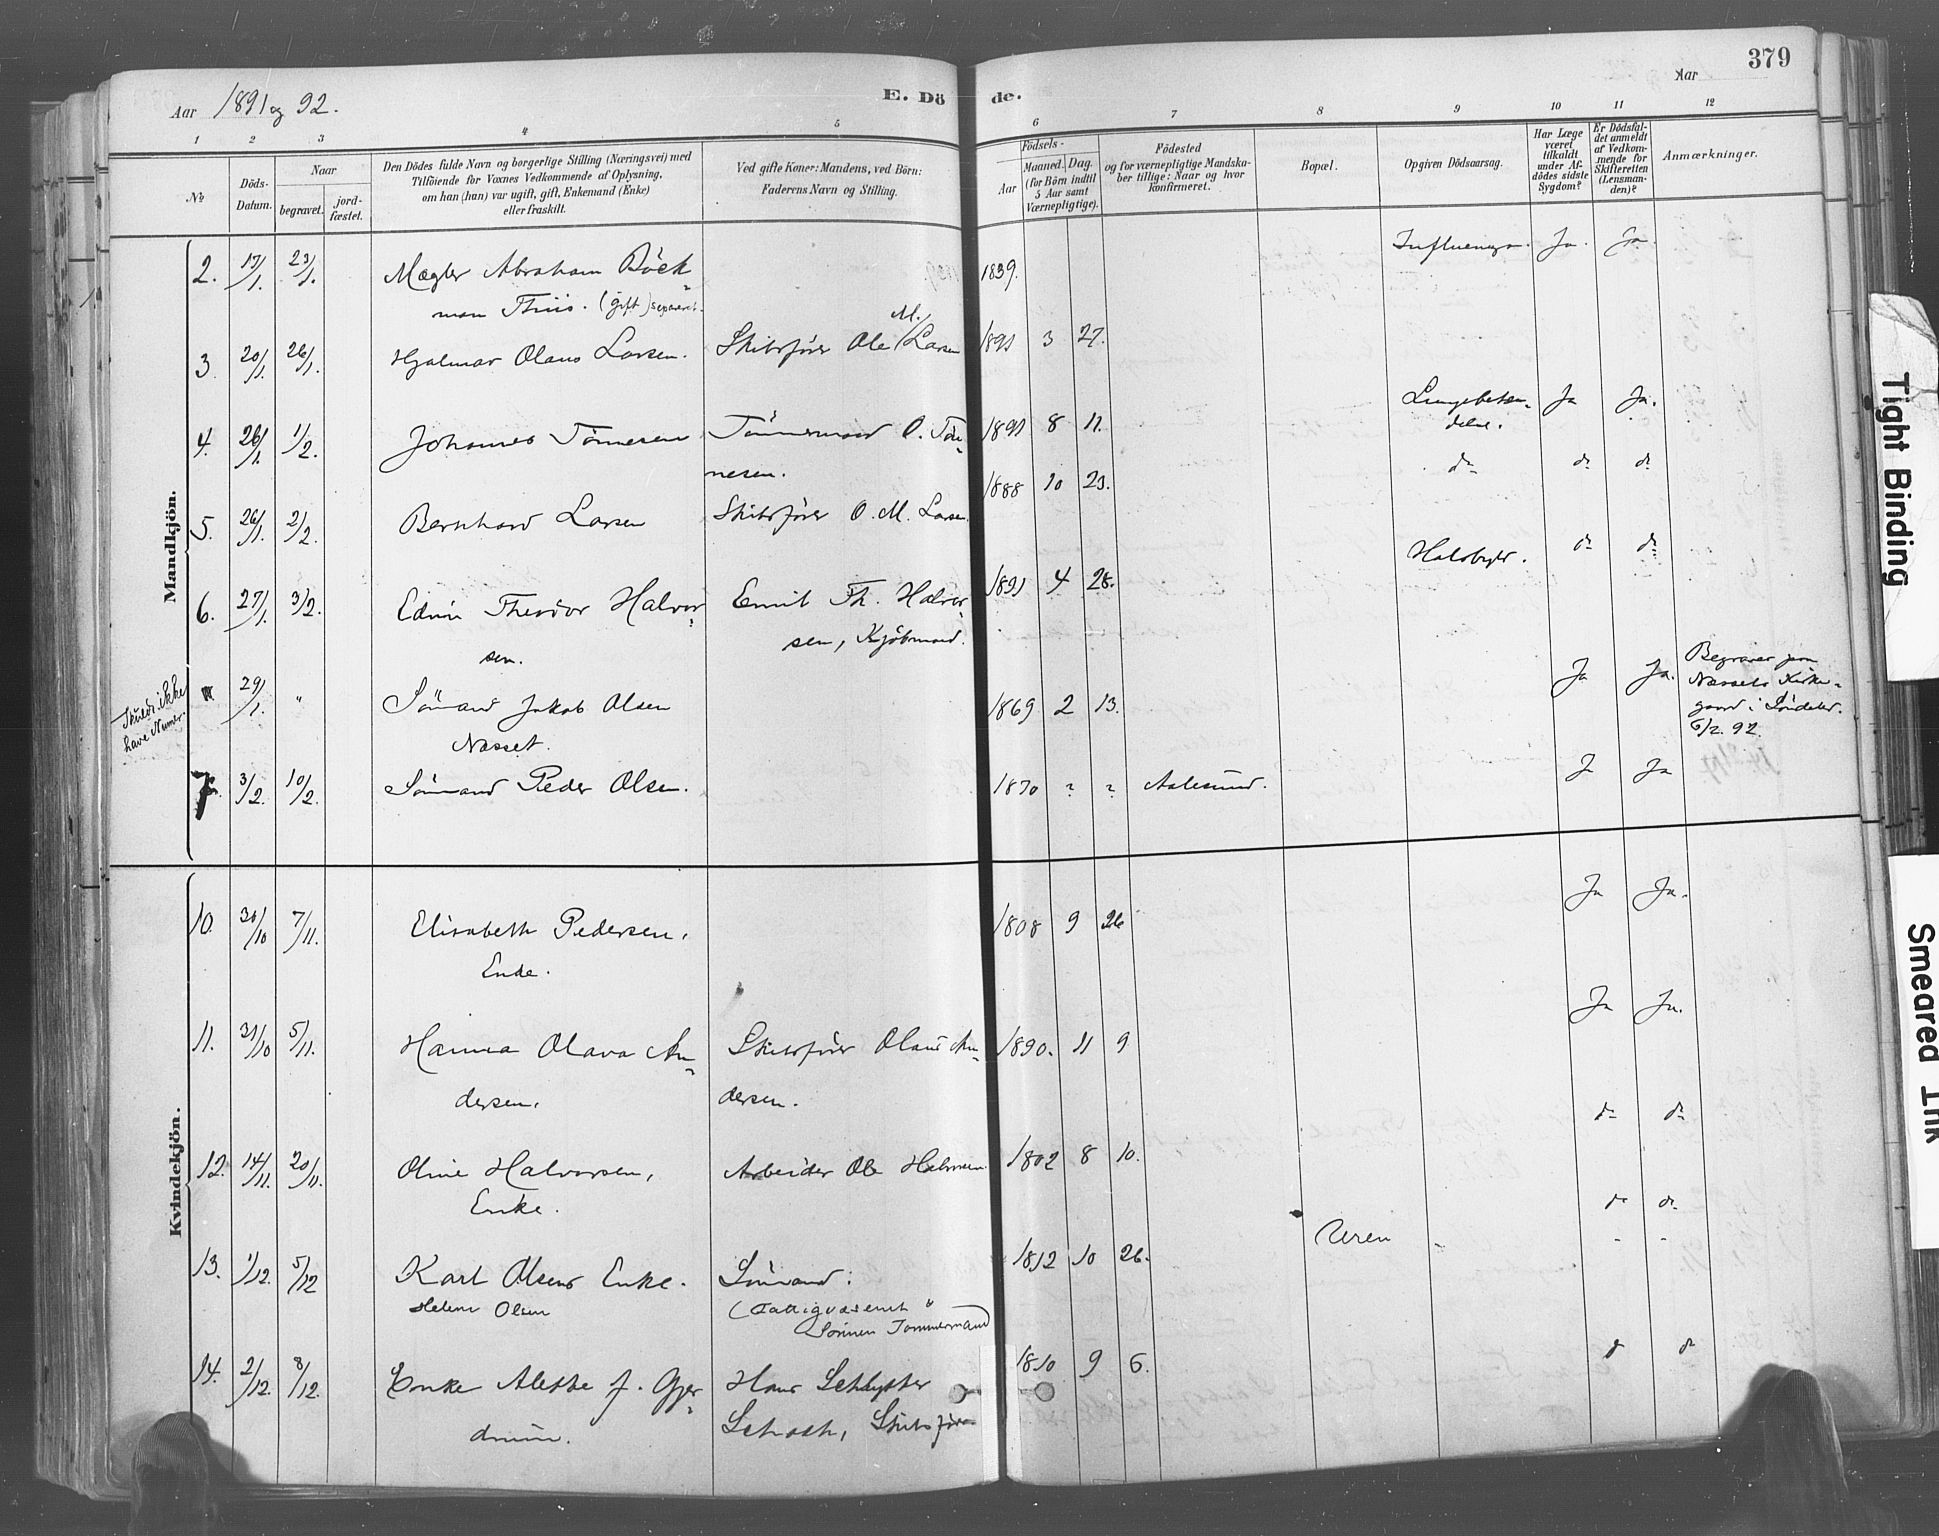 379
Aar 1891 og 92.
E. Dö
de.
Aar
1 2 3 4 5 6 7 8 9 10 11 12
No.
Döds-
Datum.
Naar
begravet.
jord-
fæstet.
Den Dödes fulde Navn og borgerlige Stilling (Næringsvei) med
Tilföiende for Voxnes Vedkommende af Oplysning,
om han (hun) var ugift, gift, Enkemand (Enke)
eller fraskilt.
Ved gifte Koner: Mandens, ved Börn:
Faderens Navn og Stilling.
Födsels-
Aar
Maaned.
Dag.
(for Börn indtil
5 Aar samt
Værnepligtige).
Födested
og for værnepligtige Mandska-
ber tillige: Naar og hvor
konfirmeret.
Bopæl.
Opgiven Dödsaarsag.
Har Læge
været
tilkaldt
under Af-
dödes sidste
Sygdom?
Er Dödsfal-
det anmeldt
af Vedkom-
mende for
Skifteretten
(Lensman-
den)?
Anmærkninger.
Mandkjön.
2. 17/1. 23/1. Mægler Abraham Böck-
man Thiis. (gift) separeret. 1839. Influenza. Ja. Ja.
3 20/1. 26/1. Hjalmar Olaus Larsen. Skibsförer Ole M. Larsen 1891 3 27.
4. 26/1. 1/2. Johannes Tönnesen Tömmermand O. Tön-
nesen. 1891 8 11. Lungebeten-
delse. Ja Ja.
5. 26/1. 2/2. Bernhard Larsen Skibsförer O. M. Larsen. 1888 10 23. do do do
6. 27/1. 3/2. Edvin Theodor Halvor-
sen. Emil Th. Halvor-
sen, Kjöbmand. 1891 4 28. Halsbyld. do do
Skulde ikke
have Numer.
29/1. " Sömand Jakob Olsen
Næsset. 1869 2 13. Ja Ja. Begraves paa
Næssets Kirke-
gaard i Söndeled.
6/2. 92.
7. 3/2. 10/2. Sömand Peder Olsen. 1870 ? ? Aalesund. Ja Ja
Kvindekjön.
10. 30/10 7/11. Elisabeth Pedersen,
Enke. 1808 9 26 Ja Ja.
11. 31/10 5/11. Hanna Olava An-
dersen. Skibsförer Olaus An-
dersen. 1890. 11 9 Ja Ja.
12. 14/11. 20/11. Oline Halvorsen,
Enke. Arbeider Ole Halvorsen 1802 8 10. do do
13. 1/12. 5/12 Karl Olsens Enke.
Helene Olsen Sömand:
(Fattigvæsenet
Sönnen Tömmermand 1812 10 26. Uren do do
14. 2/12. 8/12. Enke Alette f. Gjer-
drum. Hans Schlytter
Schoth, Skibsförer 1810 9 6. do do
Tight Binding
Smeared Ink